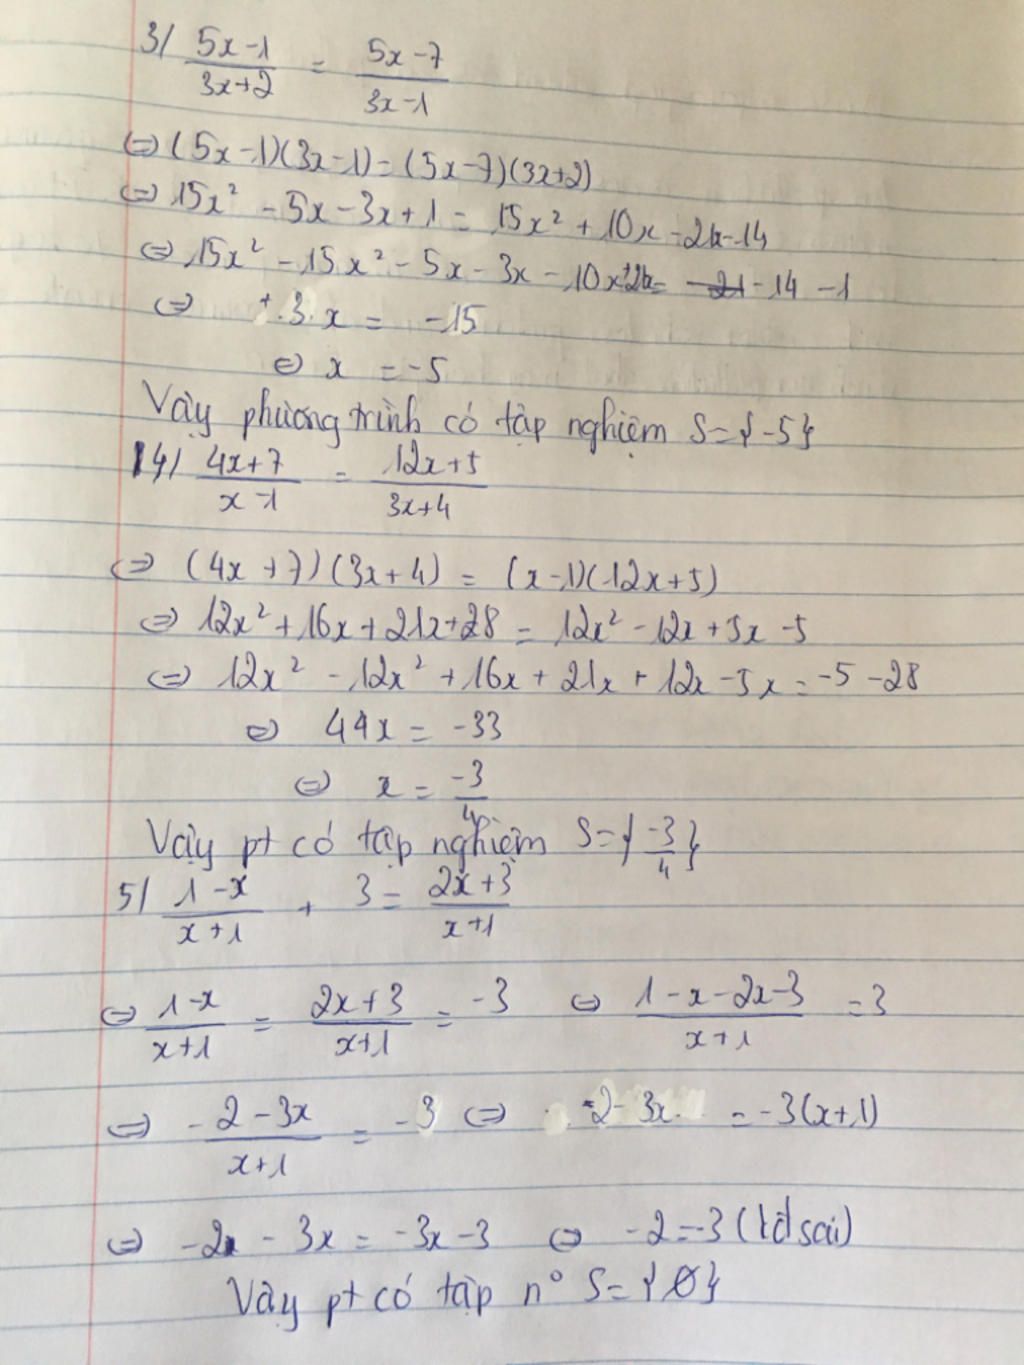 3/ (5x-1)/(3x+2) = (5x-7)/(3x-1)
⇔ (5x-1)(3x-1) = (5x-7)(3x+2)
⇔ 15x² - 5x - 3x + 1 = 15x² + 10x - 21x - 14
⇔ 15x² - 15x² - 5x - 3x - 10x + 21x = -14 - 1
⇔ +3x = -15
⇔ x = -5
Vậy phương trình có tập nghiệm S={-5}
4/ (4x+7)/(x-1) = (12x+5)/(3x+4)
⇔ (4x+7)(3x+4) = (x-1)(12x+5)
⇔ 12x² + 16x + 21x + 28 = 12x² - 12x + 5x - 5
⇔ 12x² - 12x² + 16x + 21x + 12x - 5x = -5 - 28
⇔ 44x = -33
⇔ x = -3/4
Vậy pt có tập nghiệm S={-3/4}
5/ (1-x)/(x+1) + 3 = (2x+3)/(x+1)
⇔ (1-x)/(x+1) = (2x+3)/(x+1) = -3 ⇔ (1-x-2x-3)/(x+1) = 3
⇔ (-2-3x)/(x+1) = -3 ⇔ -2-3x = -3(x+1)
⇔ -2 - 3x = -3x - 3 ⇔ -2 = -3 (kđ sai)
Vậy pt có tập n° S={∅}